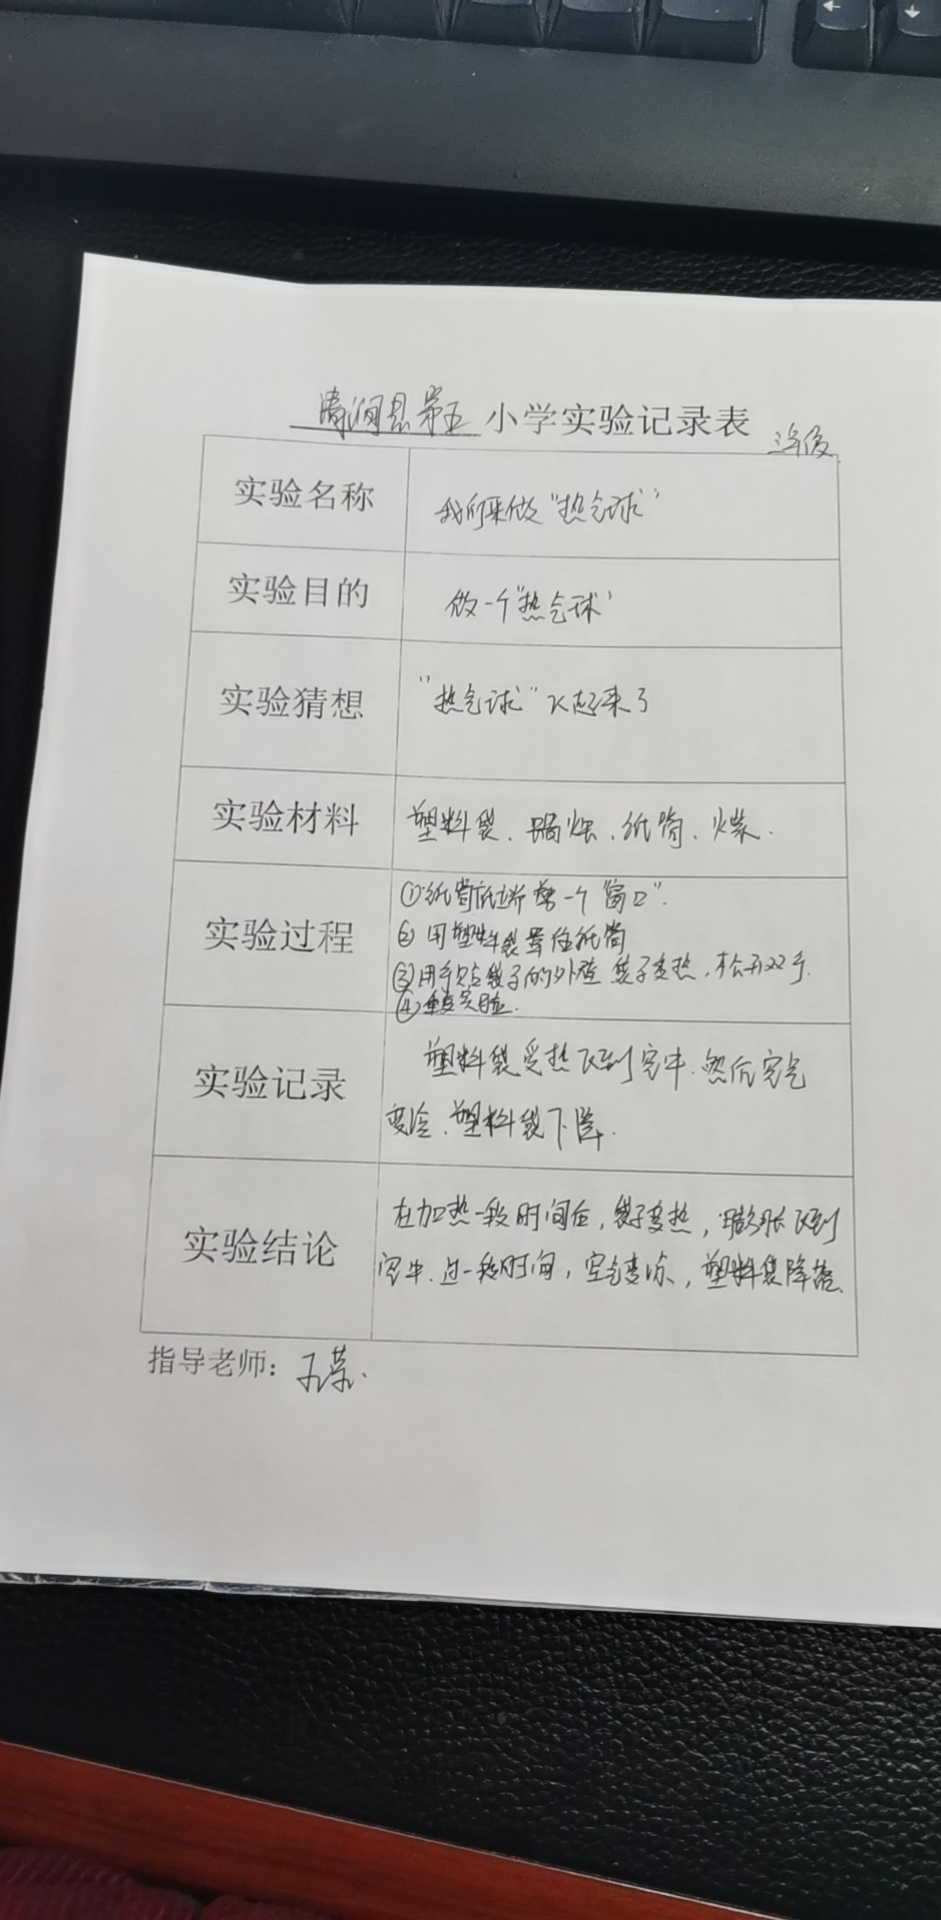 清涧县第五小学实验记录表
三年级
实验名称 我们来做“热气球”
实验目的 做一个“热气球”
实验猜想 “热气球”飞起来了
实验材料 塑料袋、蜡烛、纸筒、火柴.
实验过程 ①纸筒底端剪一个“窗口”.
② 用塑料袋罩住纸筒
③用手 袋子的外壁 袋子变热,松开双手.
④重复实验.
实验记录 塑料袋受热飞到空中.然后空气
变冷.塑料袋下降.
实验结论 在加热一段时间后,袋子变热,膨胀飞到
空中.过一段时间,空气变凉,塑料袋降落.
指导老师: